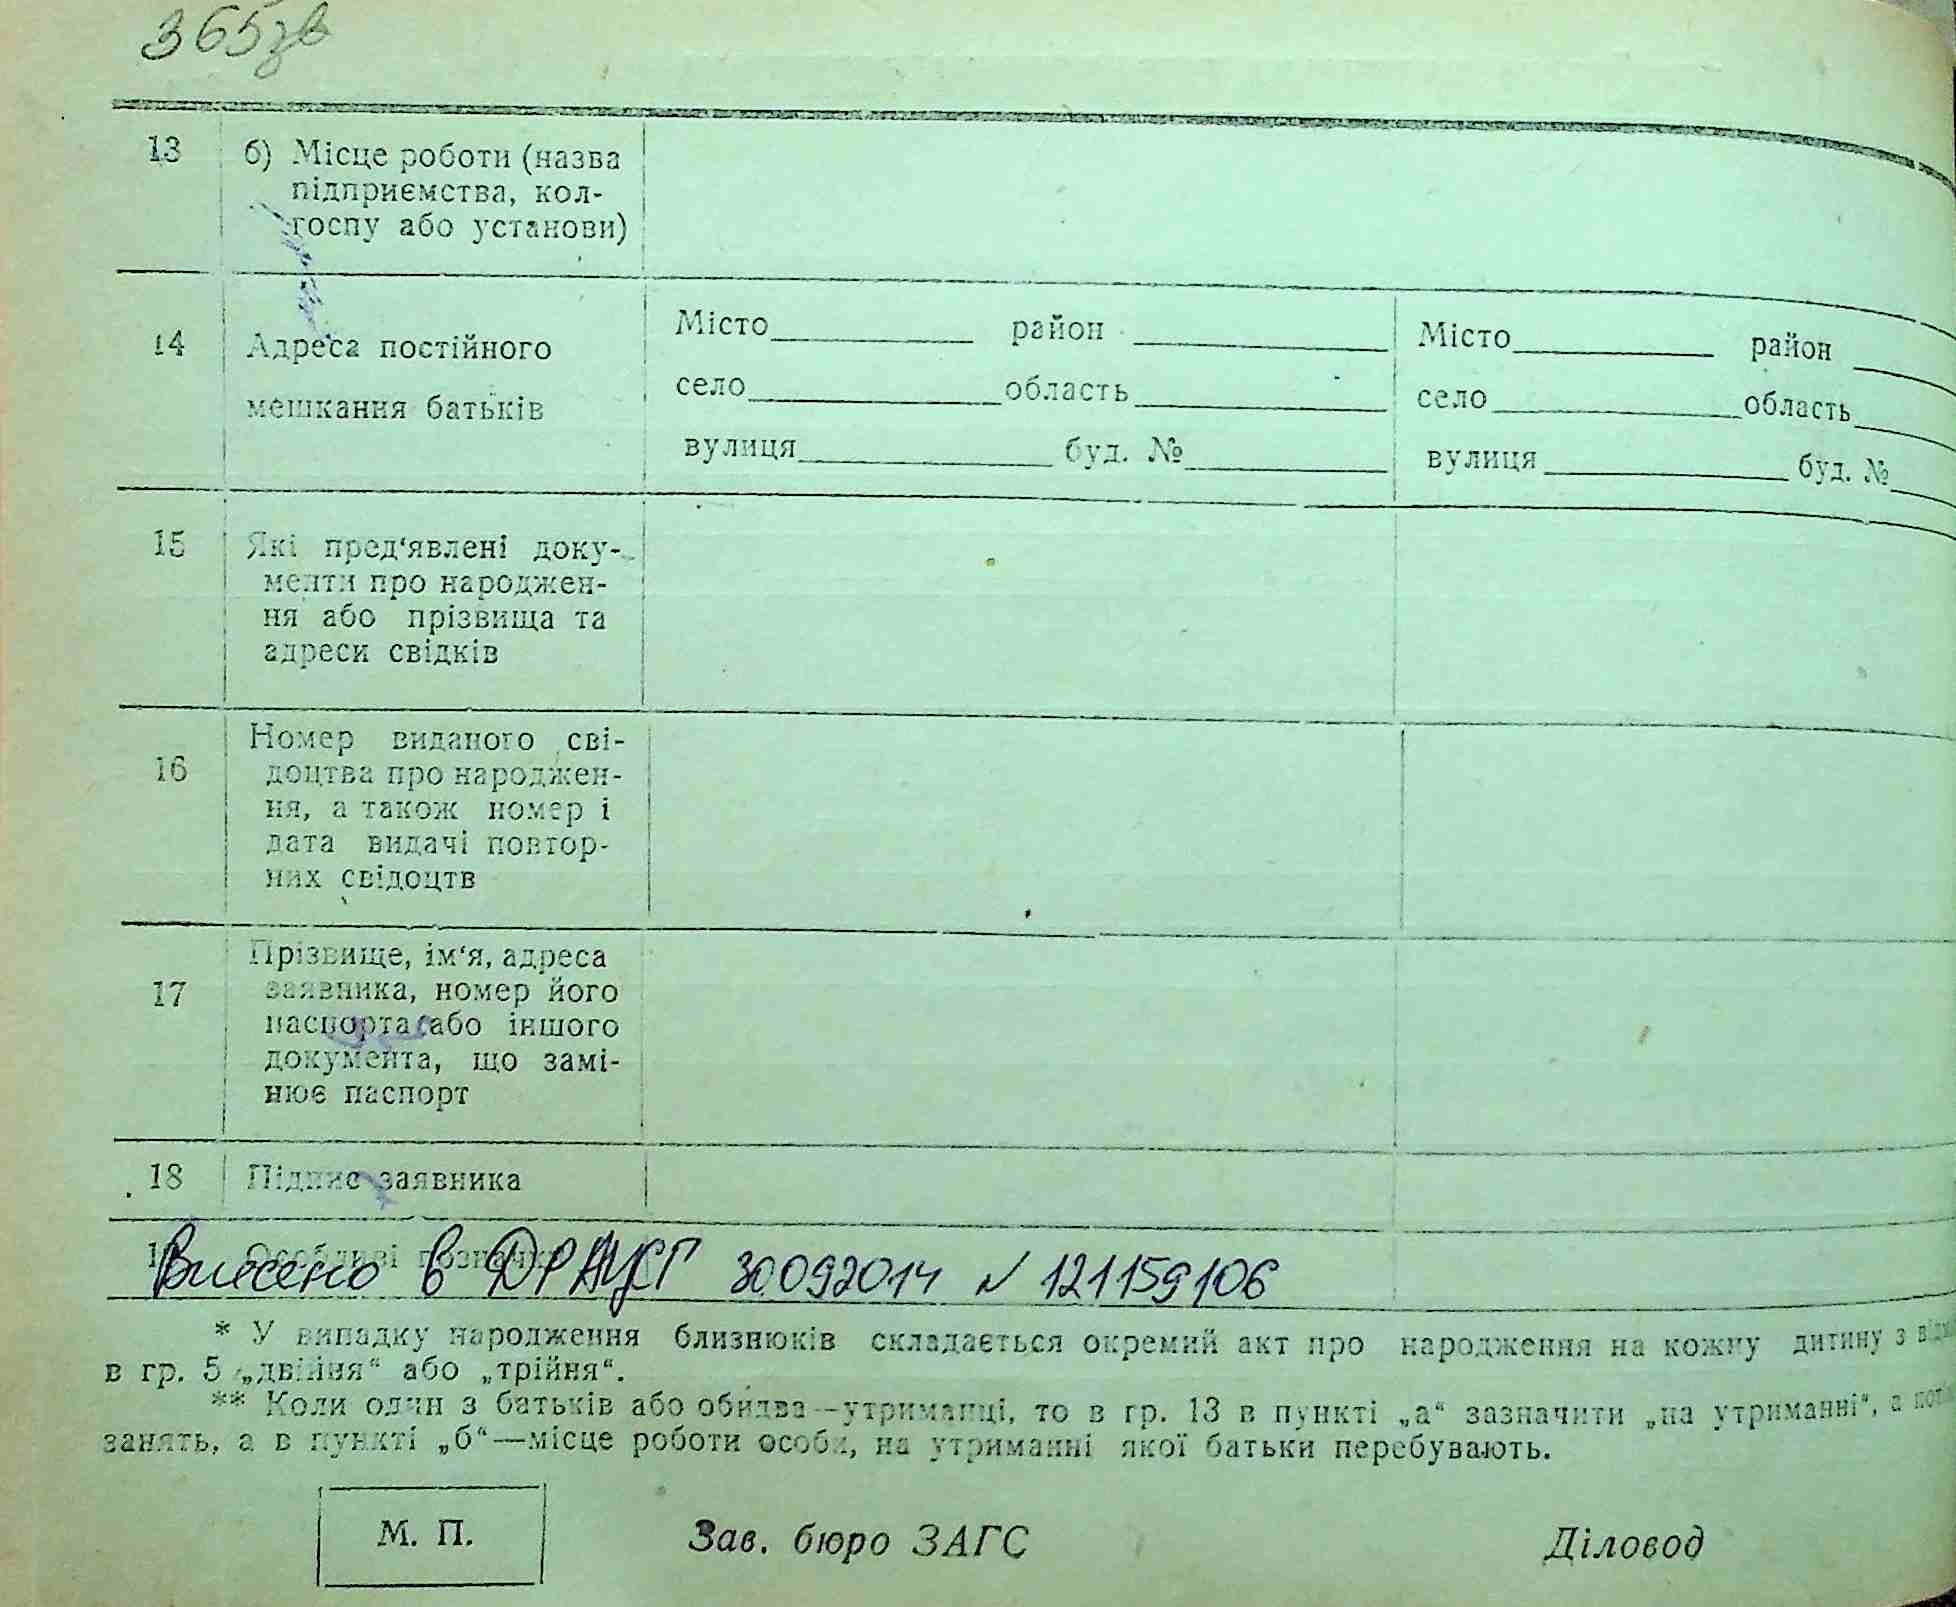 365зв
13 б) Місце роботи (назва
підприємства, кол-
госпу або установи)
14 Адреса постійного
мешкання батьків
Місто район
село область
вулиця буд. №
Місто район
село область
вулиця буд. №
15 Які пред‘явлені доку-
менти про народжен-
ня або прізвища та
адреси свідків
16 Номер виданого сві-
доцтва про народжен-
ня, а також номер і
дата видачі повтор-
них свідоцтв
17 Прізвище, ім‘я, адреса
заявника, номер його
паспорта або іншого
документа, що замі-
нює паспорт
18 Підпис заявника
Особливі позначки
Внесено в ДРАЦСГ 30092014 N 121159106
* У випадку народження близнюків складається окремий акт про народження на кожну дитину з
в гр. 5 „двійня“ або „трійня“.
** Коли один з батьків або обидва—утриманці, то в гр. 13 в пункті „а“ зазначити „на утриманні“, а
занять, а в пункті „б“—місце роботи особи, на утриманні якої батьки перебувають.
М. П. Зав. бюро ЗАГС Діловод